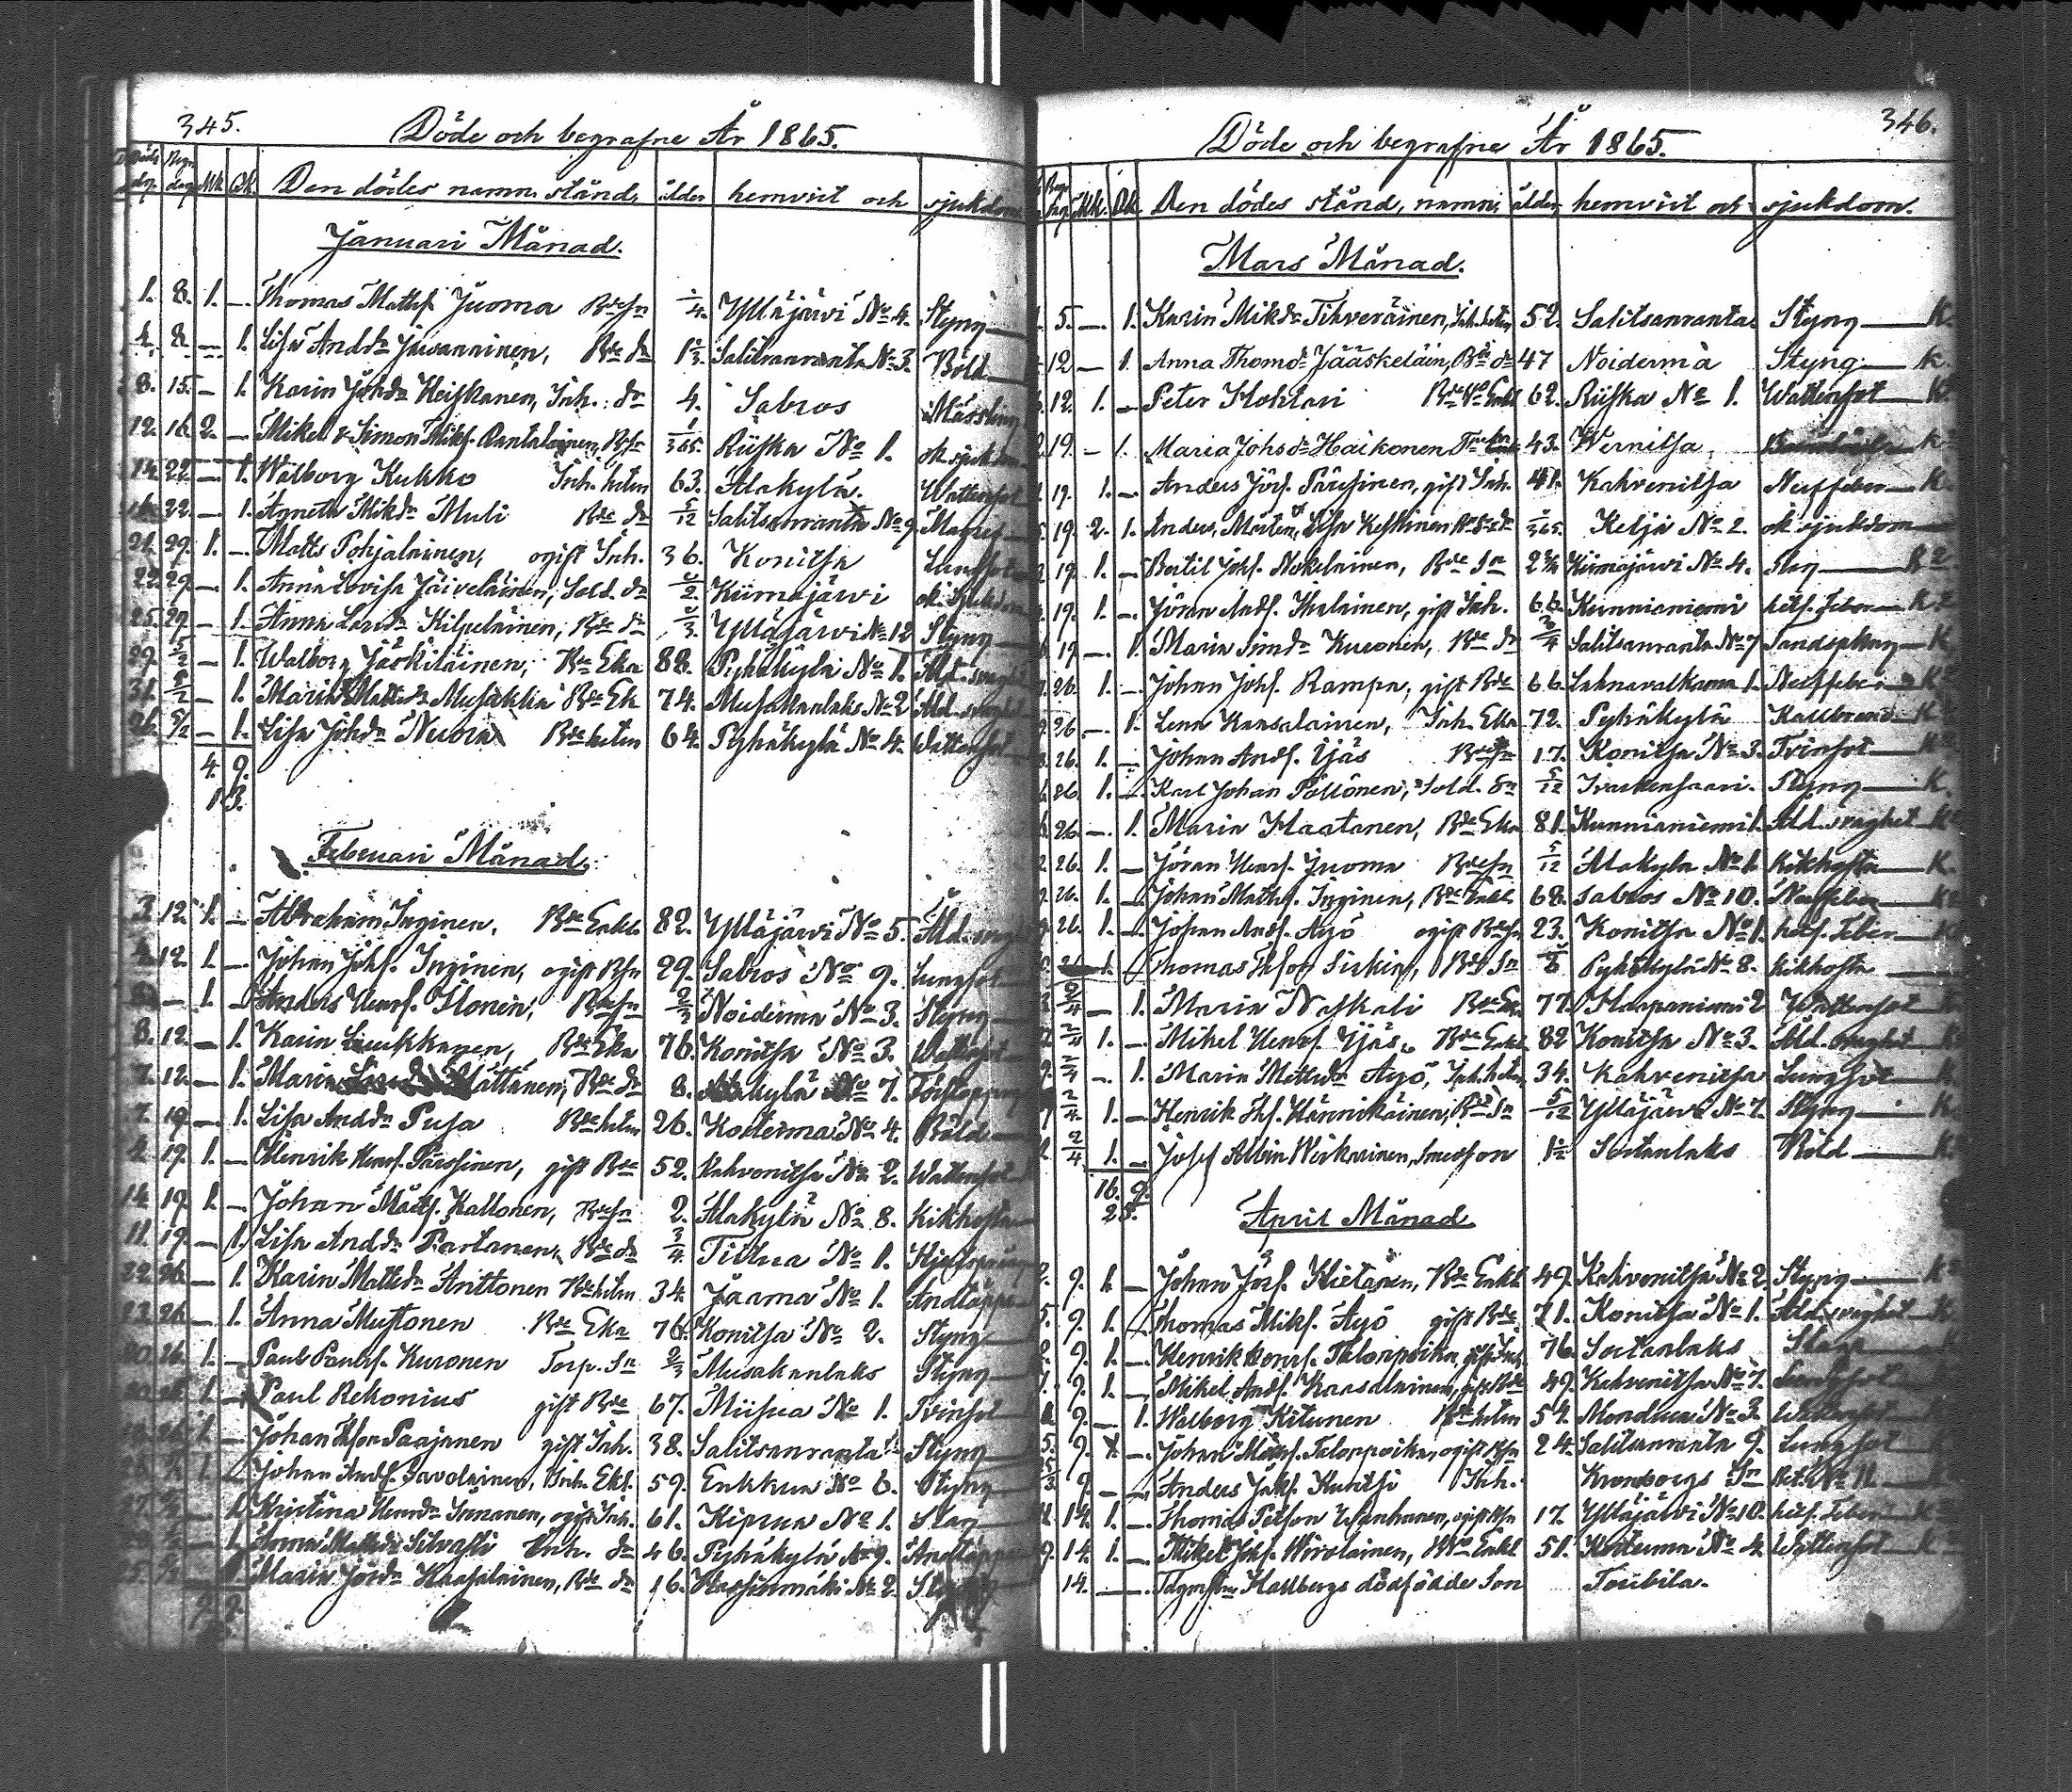 345.
Döde och begrafne År 1865.
Döds dag. Begr. dag Mk. Qk. Den dödes namn, stånd, ålder hemvist och sjukdom
Januari Månad.
1. 8. 1. — Thomas Matts. Juoma Bdesn 1/4. Ylläjärvi No 4. Styng
4. 8. — 1. Lisa Andsdr Jusanainen, Bde dr Salitsanranta No 3. Böld
8. 15. — 1. Karin Johdr Heiskanen, Inh. dr 4. Sabros Mässling
12. 16. 2. — Mikel & Simon Miks. Rantalainen, Bsn 1/365. Riiska No 1. ok. sjukdm
14. 22. — 1. Walborg Kukko Inh. hstru 63. Alakylä. Wattusot
22. — 1. Agneta Mikdr Muli Bde dr 5/12 Salitsanranta No 9. Magref
21. 29. 1. — Matts Pohjalainen, ogift Inh. 36. Konitsa Lungsot
22. 29. — 1. Anna Lovisa Jäiveläinen, Sold. dr Kiimajärvi ok. sjukdom
25. 29. — 1. Anna Kilpeläinen, Bde dr Ylläjärvi No 12 Styng
29. 5/2 — 1. Walborg Jäskiläinen, Bde Eka 88. Pyhäkylä No 1. Åld. svaghet
31. 5/2 — 1. Maria Mattsdr Musakka Bde Ek 74. Musakanlaks No 2 Åld. svaghet
26. 5/2 — 1. Lisa Johdr Nuora Bde hstru 64. Pyhäkylä No 4. Wattusot
4. 9.
13.
Februari Månad.
3. 12. 1. — Abraham Inginen, Bde Enkl. 82. Ylläjärvi No 5. Åld. svagh
4. 12. 1. — Johan Johs. Inginen, ogift Bsn 29. Sabros No 9. Lungsot
— 1. — Anders Henrs. Ilonen, Bdesn 2/3 Noiderma No 3. Styng
8. 12. — 1. Karin Liukkanen, Bde Eka 76. Konitsa No 3. Wattusot
7. 12. — 1. Maria Mättänen, Bde dr 8. Alakylä No 7. Förstoppning
7. 19. — 1. Lisa Andsdr Pusa Bde hstru 26. Kosterma No 4. Böld
4. 19. 1. — Henrik Henrs. Pärssinen, gift Bde 52. Kahvenitsa No 2. Wattusot
14. 19. 1. — Johan Matts. Kallonen, Bdesn 2. Alakylä No 8. Kikhosta
11. 19. — 1. Lisa Andsdr Partanen, Bde dr 3/4. Tiitua No 1.
22. 26. — 1. Karin Mattsdr Anttonen Bde hstru 34. Jaama No 1. Andtäppa
23. 26. — 1. Anna Mustonen Bde Eka 76. Konitsa No 2. Styng
20. 26. 1. — Paul Pauls. Kuronen Torp. Sn 2/3 Musakanlaks Styng
1. — Paul Rekonius gift Bde 67. Miisua No 1. Tvinsot
1. — Johan Paajanen gift Inh. 38. Salitsanranta Styng
1. — Johan Ands. Savolainen, Inh. Ekl. 59. Enkkua No 6. Styng
27. 1. Kristina Henrsdr Innanen, ogift Inh. 61. Kiprua No 1. Slag
1. Anna Mattsdr Silvasti Inh. dr 46. Pyhäkylä No 9. Andtäppa
1. Maria Jörsdr Kaasalainen, Bde dr 16. Hassinmäki No 2.
346.
Döde och begrafne År 1865.
Begr. dag Mk. Qk. Den dödes stånd, namn, ålder, hemvist och sjukdom.
Mars Månad.
5. — 1. Karin Mikdr Tihveräinen, Inh. hstru 52. Salitsanranta Styng K.
12 — 1. Anna Thomdr Jääskeläin, Bde dr 47 Noidermä Styng K.
12. 1. — Peter Hohtari Bde Enkl 62. Riiska No 1. Wattusot K.
19. — 1. Maria Johsdr Haikonen 43. Wernitsa, K.
19. 1. — Anders Jörs. Pärssinen, gift Inh. 41. Kahvenitsa Nerffeber K.
19. 2. 1. Anders, Mårten, Lisa Keskinen 1/365. Ketja No 2. ok sjukdom
19. 1. — Bertil Johs. Nokelainen, Bde Sn Kiimajärvi No 4. Slag
19. 1. — Jöran Ands. Ihalainen, gift Inh. 66. Kunnianiemi hets. Feber K.
19. — 1. Maria Simdr Kuronen, Bde dr Salitsanranta No 7 K.
26. 1. — Johan Johs. Rampa, gift Bde 66. Lahnavalkama 1. Nerffeber K.
26 — 1. Lena Kaasalainen, Inh. Eka 72. Pyhäkylä Kallbrand K.
26. 1. — Johan Ands. Ijäs Bdesn 17. Konitsa No 3. Tvinsot K.
26 1. — Karl Johan Pöllönen, Sold. Sn 5/12 Ivaskensaari. Styng K.
26. — 1. Maria Haatanen, Bde Eka 81. Kunnianiemi 1. Åld. svaghet K.
26. 1. — Jöran Henrs. Juoma Bdesn 5/12 Alakylä No 1. Kikhosta K.
26. 1. — Johan Matts. Inginen, Bde Enkl 68. Sabros No 10. Nerffeber K.
26. 1. — Johan Ands. Äyö ogift Bdesn 23. Konitsa No 1. hets. Feber K.
Thomas Sirkin, Bde Sn Pyhäkylä No 8. Kikhosta
2/4 — 1. Maria Naskali Bde Eka 77. Haapaniemi 2 Wattusot
2/4 1. — Mikel Henrs. Ijäs, Bde Enkl 82 Konitsa No 3. Åld. svaghet
2/4 — 1. Maria Mattsdr Äyö, Inh. hstru 34. Kahvenitsa Lungsot K.
2/4. 1. — Henrik Hännikäinen, Bde Sn 5/12 Ylläjärvi No 7. Styng K.
2/4 1. — Josef Albin Weikarinen, Smedson Sortanlaks Röld K.
16. 9.
25.
April Månad
9. 1. — Johan Jörs. Hietanen, Bde Enkl 49. Kahvenitsa No 2. Styng K.
9. 1. — Thomas Miks. Äyö gift Bde 71. Konitsa No 1. Åld. svaghet K.
9. 1. — Henrik Henrs. Talonpoika, gift Inh. 76. Sortanlaks Slag
9. 1. — Mikel Ands. Kaasalainen, gift Bde 49. Kahvenitsa No 7. Lungsot
9. — 1. Walborg Kitunen Bde hstru 54. No 3. Wattusot
9. 1. — Johan Talonpoika, ogift Bsn 24. Salitsanranta 9. Lungsot
9 — — Anders Jaks. Kunitsi Inh. Kronoborgs Sn Bet. No 11.
14. 1. — Thomas Peterson Wanhanen, ogift Bsn 17. Ylläjärvi No 10. hets. Feber K.
14. 1. — Mikel Johs. Wirolainen, Enkl 51. Kosterma No 4. Wattusot K
14. — Kallbergs dödfödde Son Toubila.